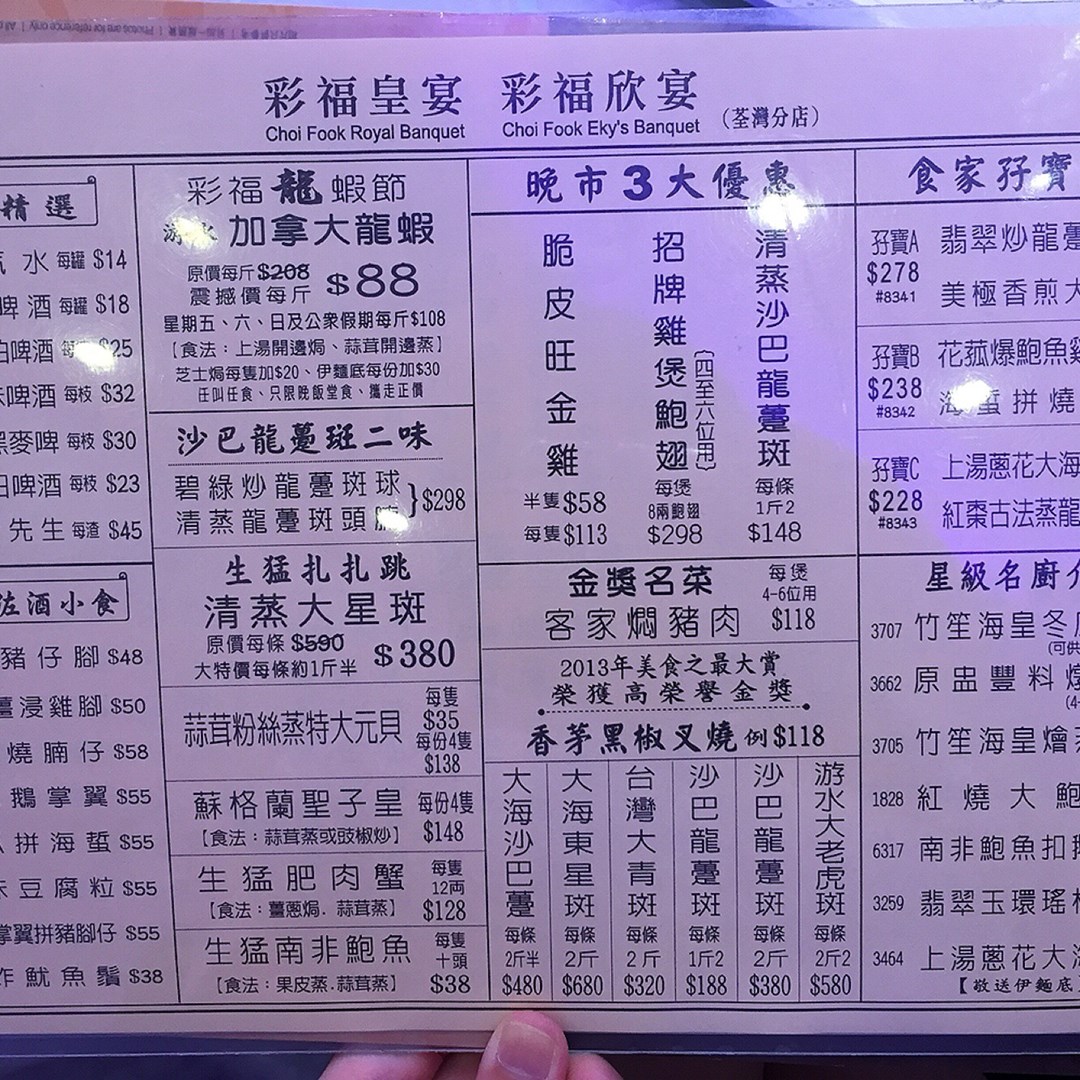 彩福皇宴 彩福欣宴 (荃灣分店)
Choi Fook Royal Banquet Choi Fook Eky's Banquet
精選
水 每罐 $14
啤酒 每罐 $18
啤酒 $25
啤酒 每枝 $32
黑麥啤 每枝 $30
啤酒 每枝 $23
先生 每渣 $45
佐酒小食
豬仔腳 $48
浸雞腳 $50
燒腩仔 $58
鵝掌翼 $55
拼海蜇 $55
豆腐粒 $55
掌翼拼豬腳仔 $55
炸魷魚鬚 $38
彩福龍蝦節
游水 加拿大龍蝦
原價每斤$208
震撼價每斤 $88
星期五、六、日及公眾假期每斤$108
【食法：上湯開邊焗、蒜茸開邊蒸】
芝士焗每隻加$20、伊麵底每份加$30
任叫任食、只限晚飯堂食、攜走正價
沙巴龍躉斑二味
碧綠炒龍躉斑球
清蒸龍躉斑頭腩
}$298
生猛扎扎跳
清蒸大星斑
原價每條 $590
大特價每條約1斤半 $380
蒜茸粉絲蒸特大元貝 每隻 $35 每份4隻 $138
蘇格蘭聖子皇 每份4隻 $148
【食法：蒜茸蒸或豉椒炒】
生猛肥肉蟹 每隻 12両 $128
【食法：薑蔥焗．蒜茸蒸】
生猛南非鮑魚 每隻 十頭 $38
【食法：果皮蒸．蒜茸蒸】
晚市3大優惠
脆皮旺金雞
半隻$58
每隻$113
招牌雞煲鮑翅
〔四至六位用〕
每煲
8兩鮑翅
$298
清蒸沙巴龍躉斑
每條
1斤2
$148
金獎名菜
客家燜豬肉
每煲
4-6位用
$118
2013年美食之最大賞
榮獲高榮譽金獎
香茅黑椒叉燒 例$118
大海沙巴躉 每條 2斤半 $480
大海東星斑 每條 2斤 $680
台灣大青斑 每條 2斤 $320
沙巴龍躉斑 每條 1斤2 $188
沙巴龍躉斑 每條 2斤 $380
游水大老虎斑 每條 2斤2 $580
食家孖寶
孖寶A $278 #8341
翡翠炒龍躉
美極香煎大
孖寶B $238 #8342
花菰爆鮑魚雞
海蜇拼燒
孖寶C $228 #8343
上湯蔥花大海
紅棗古法蒸龍
星級名廚介
3707 竹笙海皇冬
(可供
3662 原盅豐料燉
(4-
3705 竹笙海皇燴
1828 紅燒大鮑
6317 南非鮑魚扣鵝
3259 翡翠玉環瑤柱
3464 上湯蔥花大海
【敬送伊麵底】